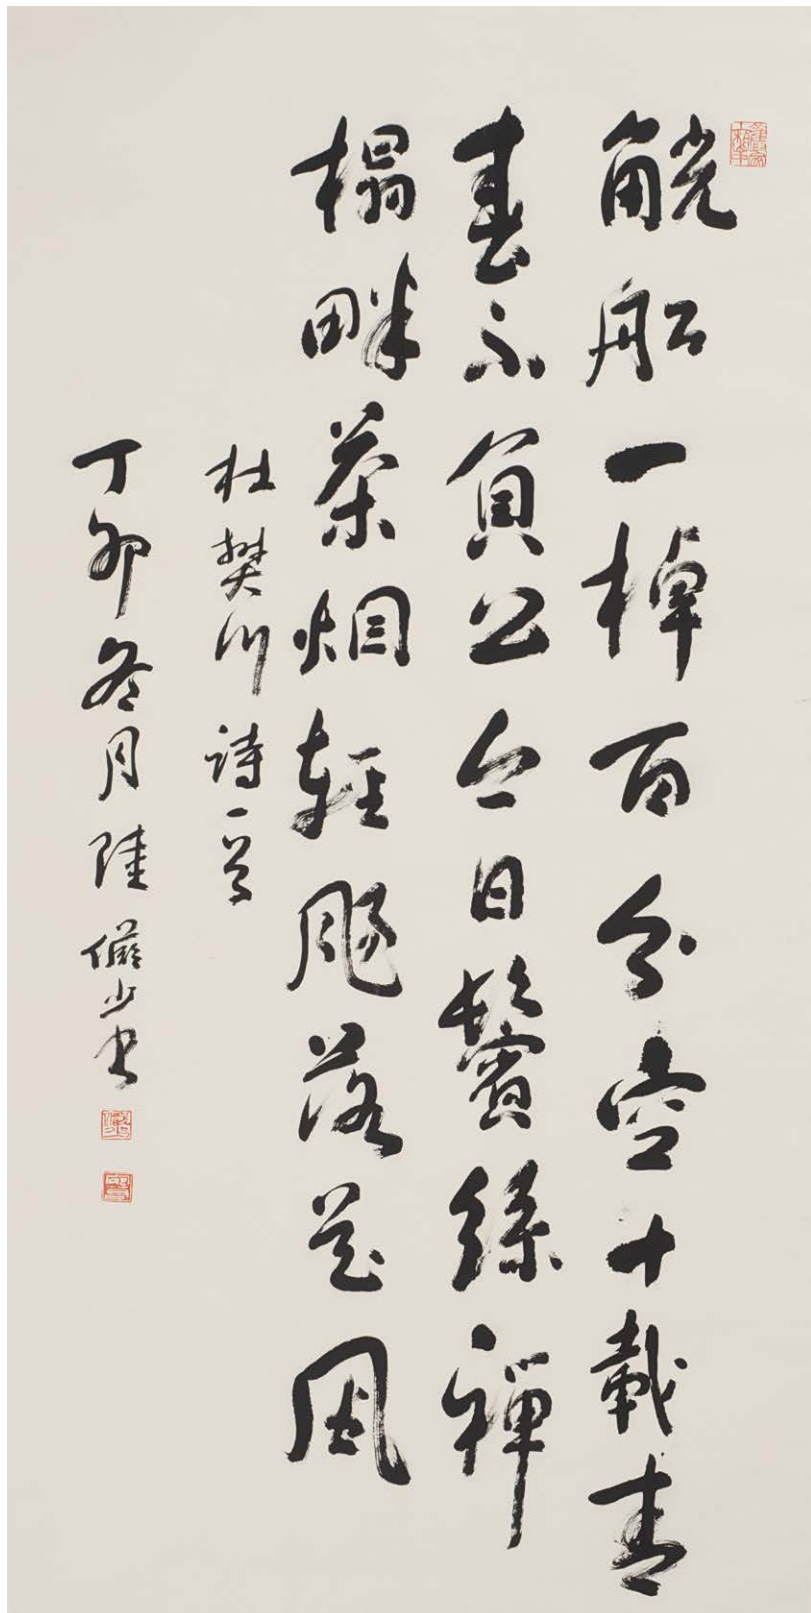 觥船一棹百分空十載青
春不負公今日鬢絲禪
榻畔茶烟輕颺落花風
杜樊川詩一首
丁卯冬月陸儼少書